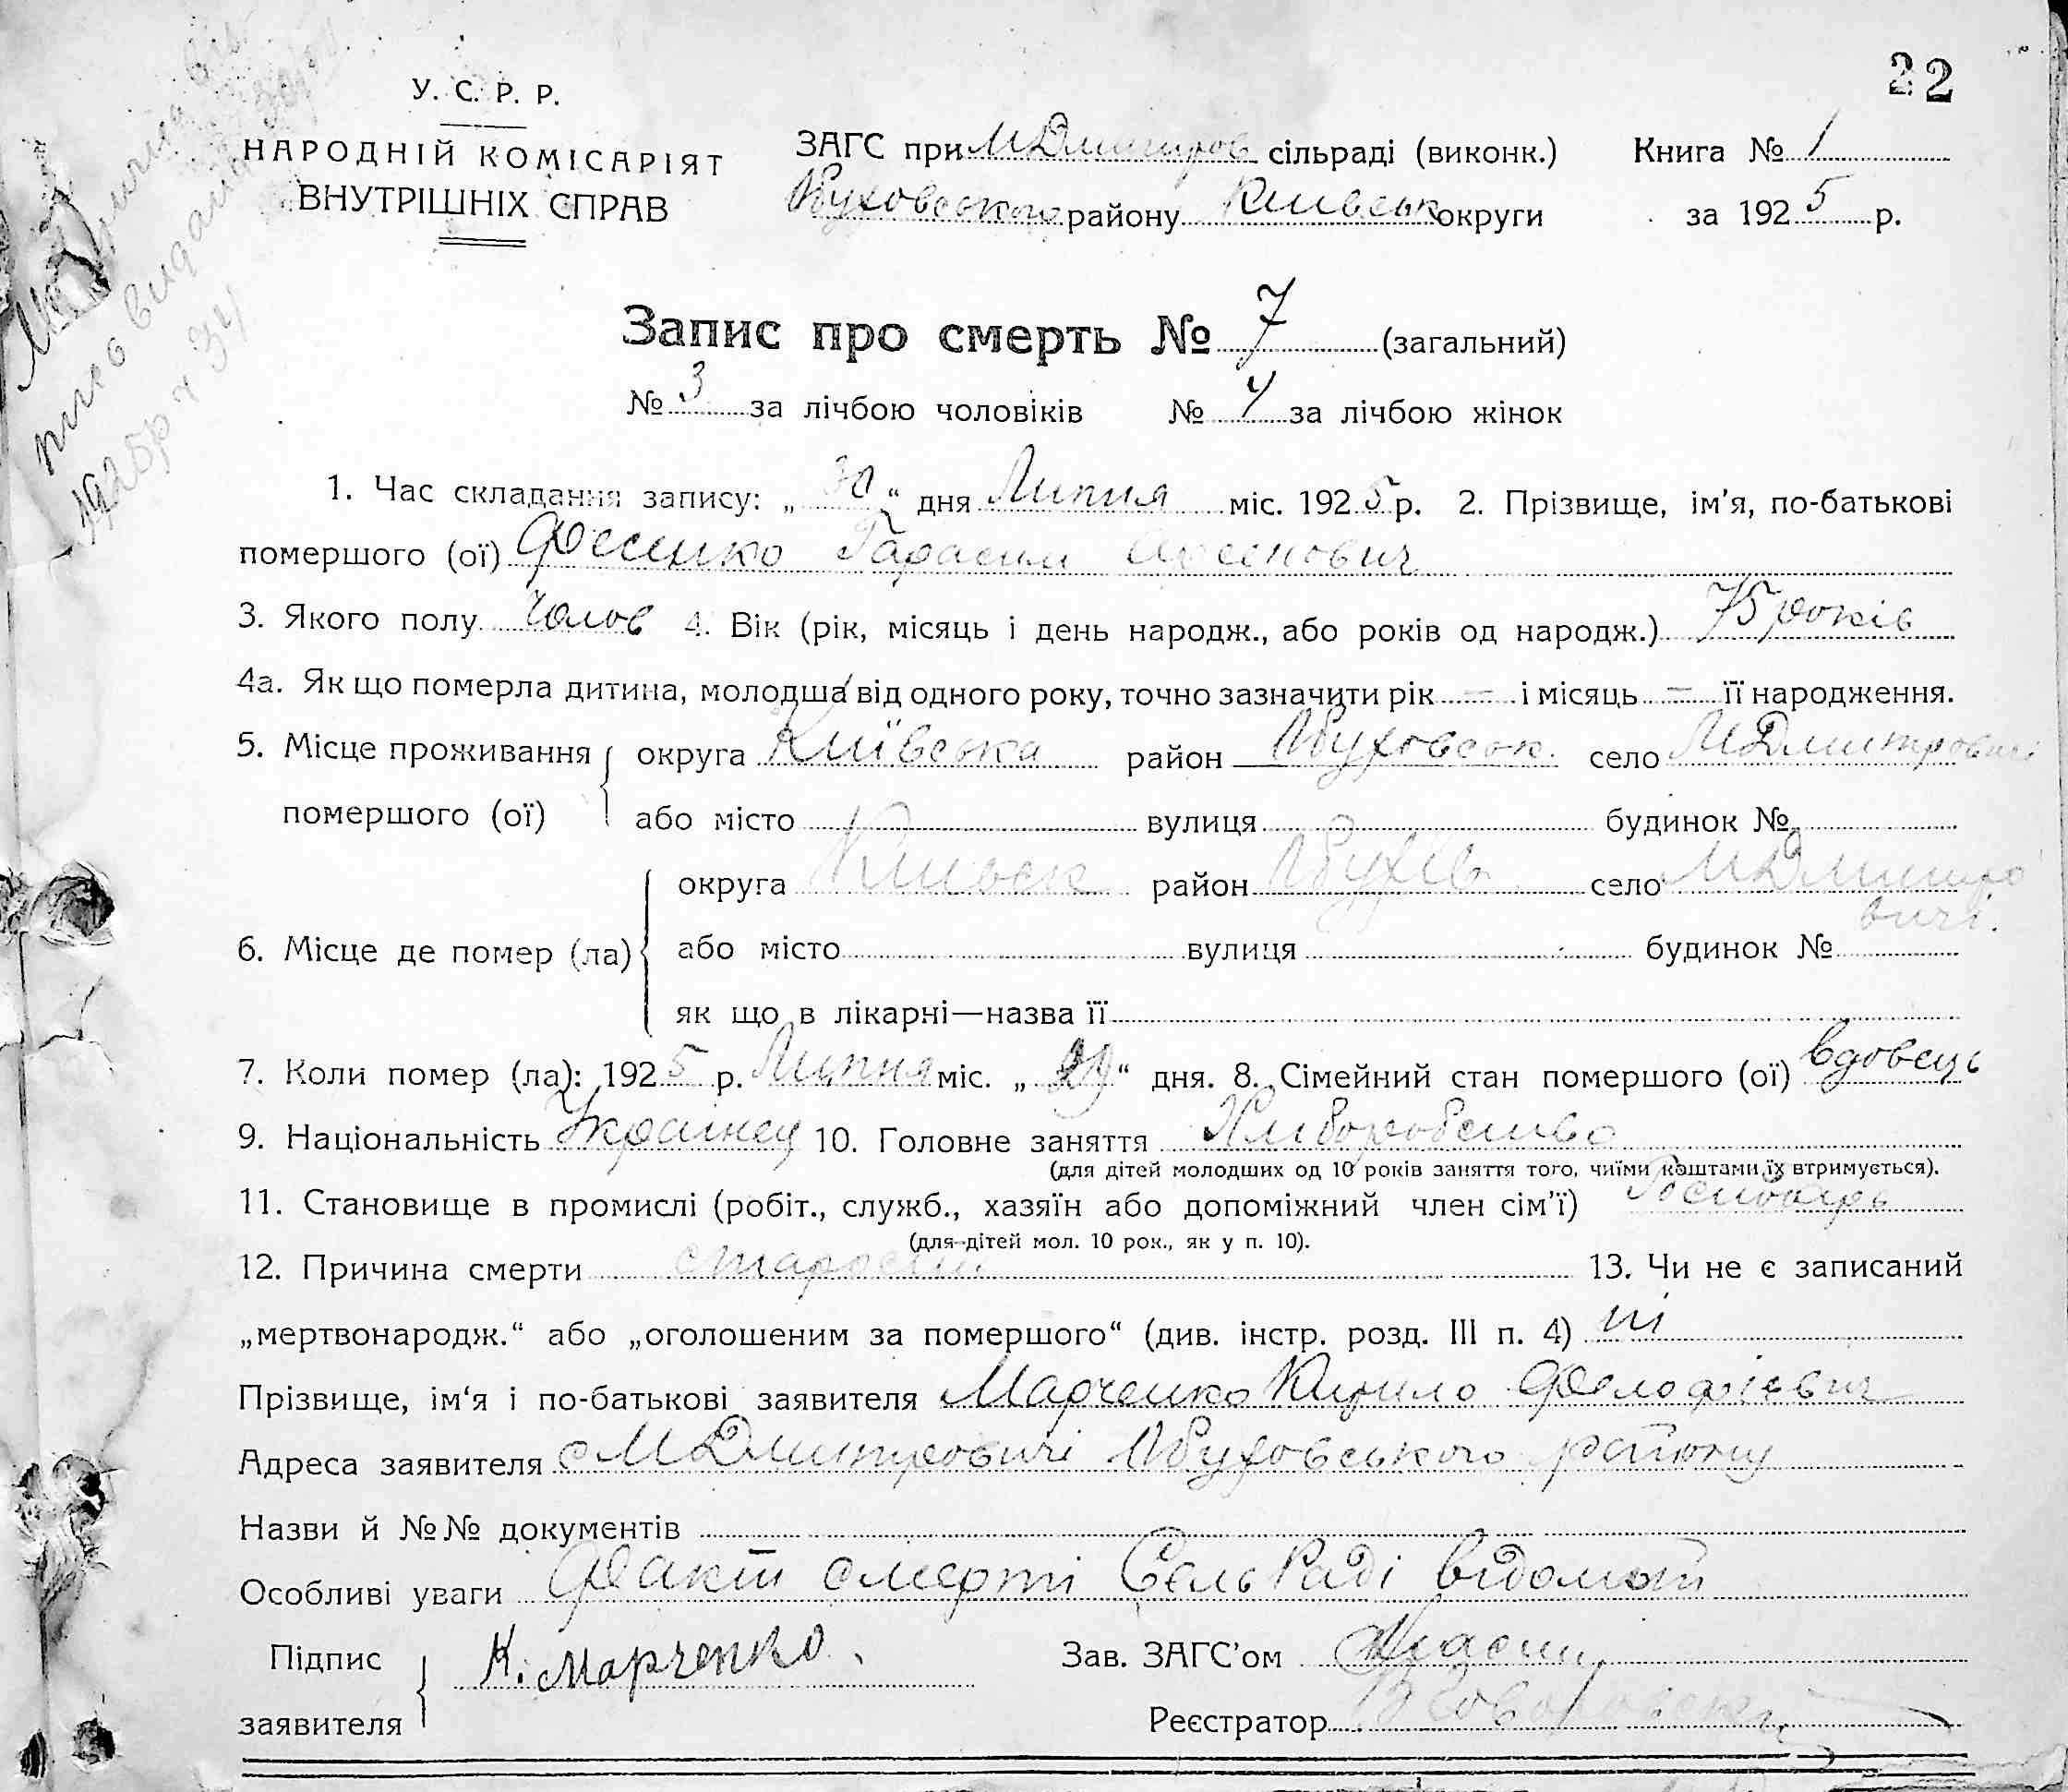 22
У. С. Р. Р.
НАРОДНІЙ КОМІСАРІЯТ
ВНУТРІШНІХ СПРАВ
ЗАГС при МДмитров сільраді (виконк.) Книга № 1
Обуховського району Київськ округи за 1925 р.
Запис про смерть № 7 (загальний)
№ 3 за лічбою чоловіків № 4 за лічбою жінок
1. Час складання запису: „30“ дня Липня міс. 1925 р. 2. Прізвище, ім’я, по-батькові
помершого (ої) Фесенко Гарасим
3. Якого полу Чолов 4. Вік (рік, місяць і день народж., або років од народж.) 75 років
4а. Як що померла дитина, молодша від одного року, точно зазначити рік — і місяць — її народження.
5. Місце проживання округа Київська район Обуховськ. село МДмитровичі
помершого (ої) або місто вулиця будинок №
округа Київськ район Обухів село МДмитро
вичі.
6. Місце де помер (ла) або місто вулиця будинок №
як що в лікарні—назва її
7. Коли помер (ла): 1925 р. Липня міс. „29“ дня. 8. Сімейний стан помершого (ої) вдовець
9. Національність Українец 10. Головне заняття Хліборобство
(для дітей молодших од 10 років заняття того, чиїми коштами їх втримується).
11. Становище в промислі (робіт., служб., хазяїн або допоміжний член сім’ї) Господарь
(для дітей мол. 10 рок., як у п. 10).
12. Причина смерти старости 13. Чи не є записаний
„мертвонародж.“ або „оголошеним за помершого“ (див. інстр. розд. III п. 4) ні
Прізвище, ім‘я і по-батькові заявителя Марченко Кирило
Адреса заявителя с МДмитровичі Обуховського району
Назви й №№ документів
Особливі уваги Факт смерті СельРаді відомий
Підпис К. Марченко. Зав. ЗАГС’ом
заявителя Реєстратор